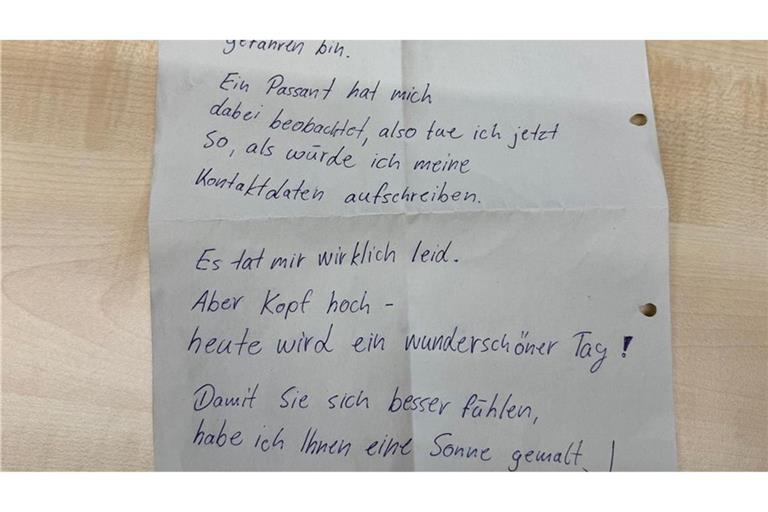 gefahren bin.
Ein Passant hat mich
dabei beobachtet, also tue ich jetzt
So, als würde ich meine
Kontaktdaten aufschreiben.
Es tat mir wirklich leid.
Aber Kopf hoch -
heute wird ein wunderschöner Tag !
Damit Sie sich besser fühlen,
habe ich Ihnen eine Sonne gemalt. !